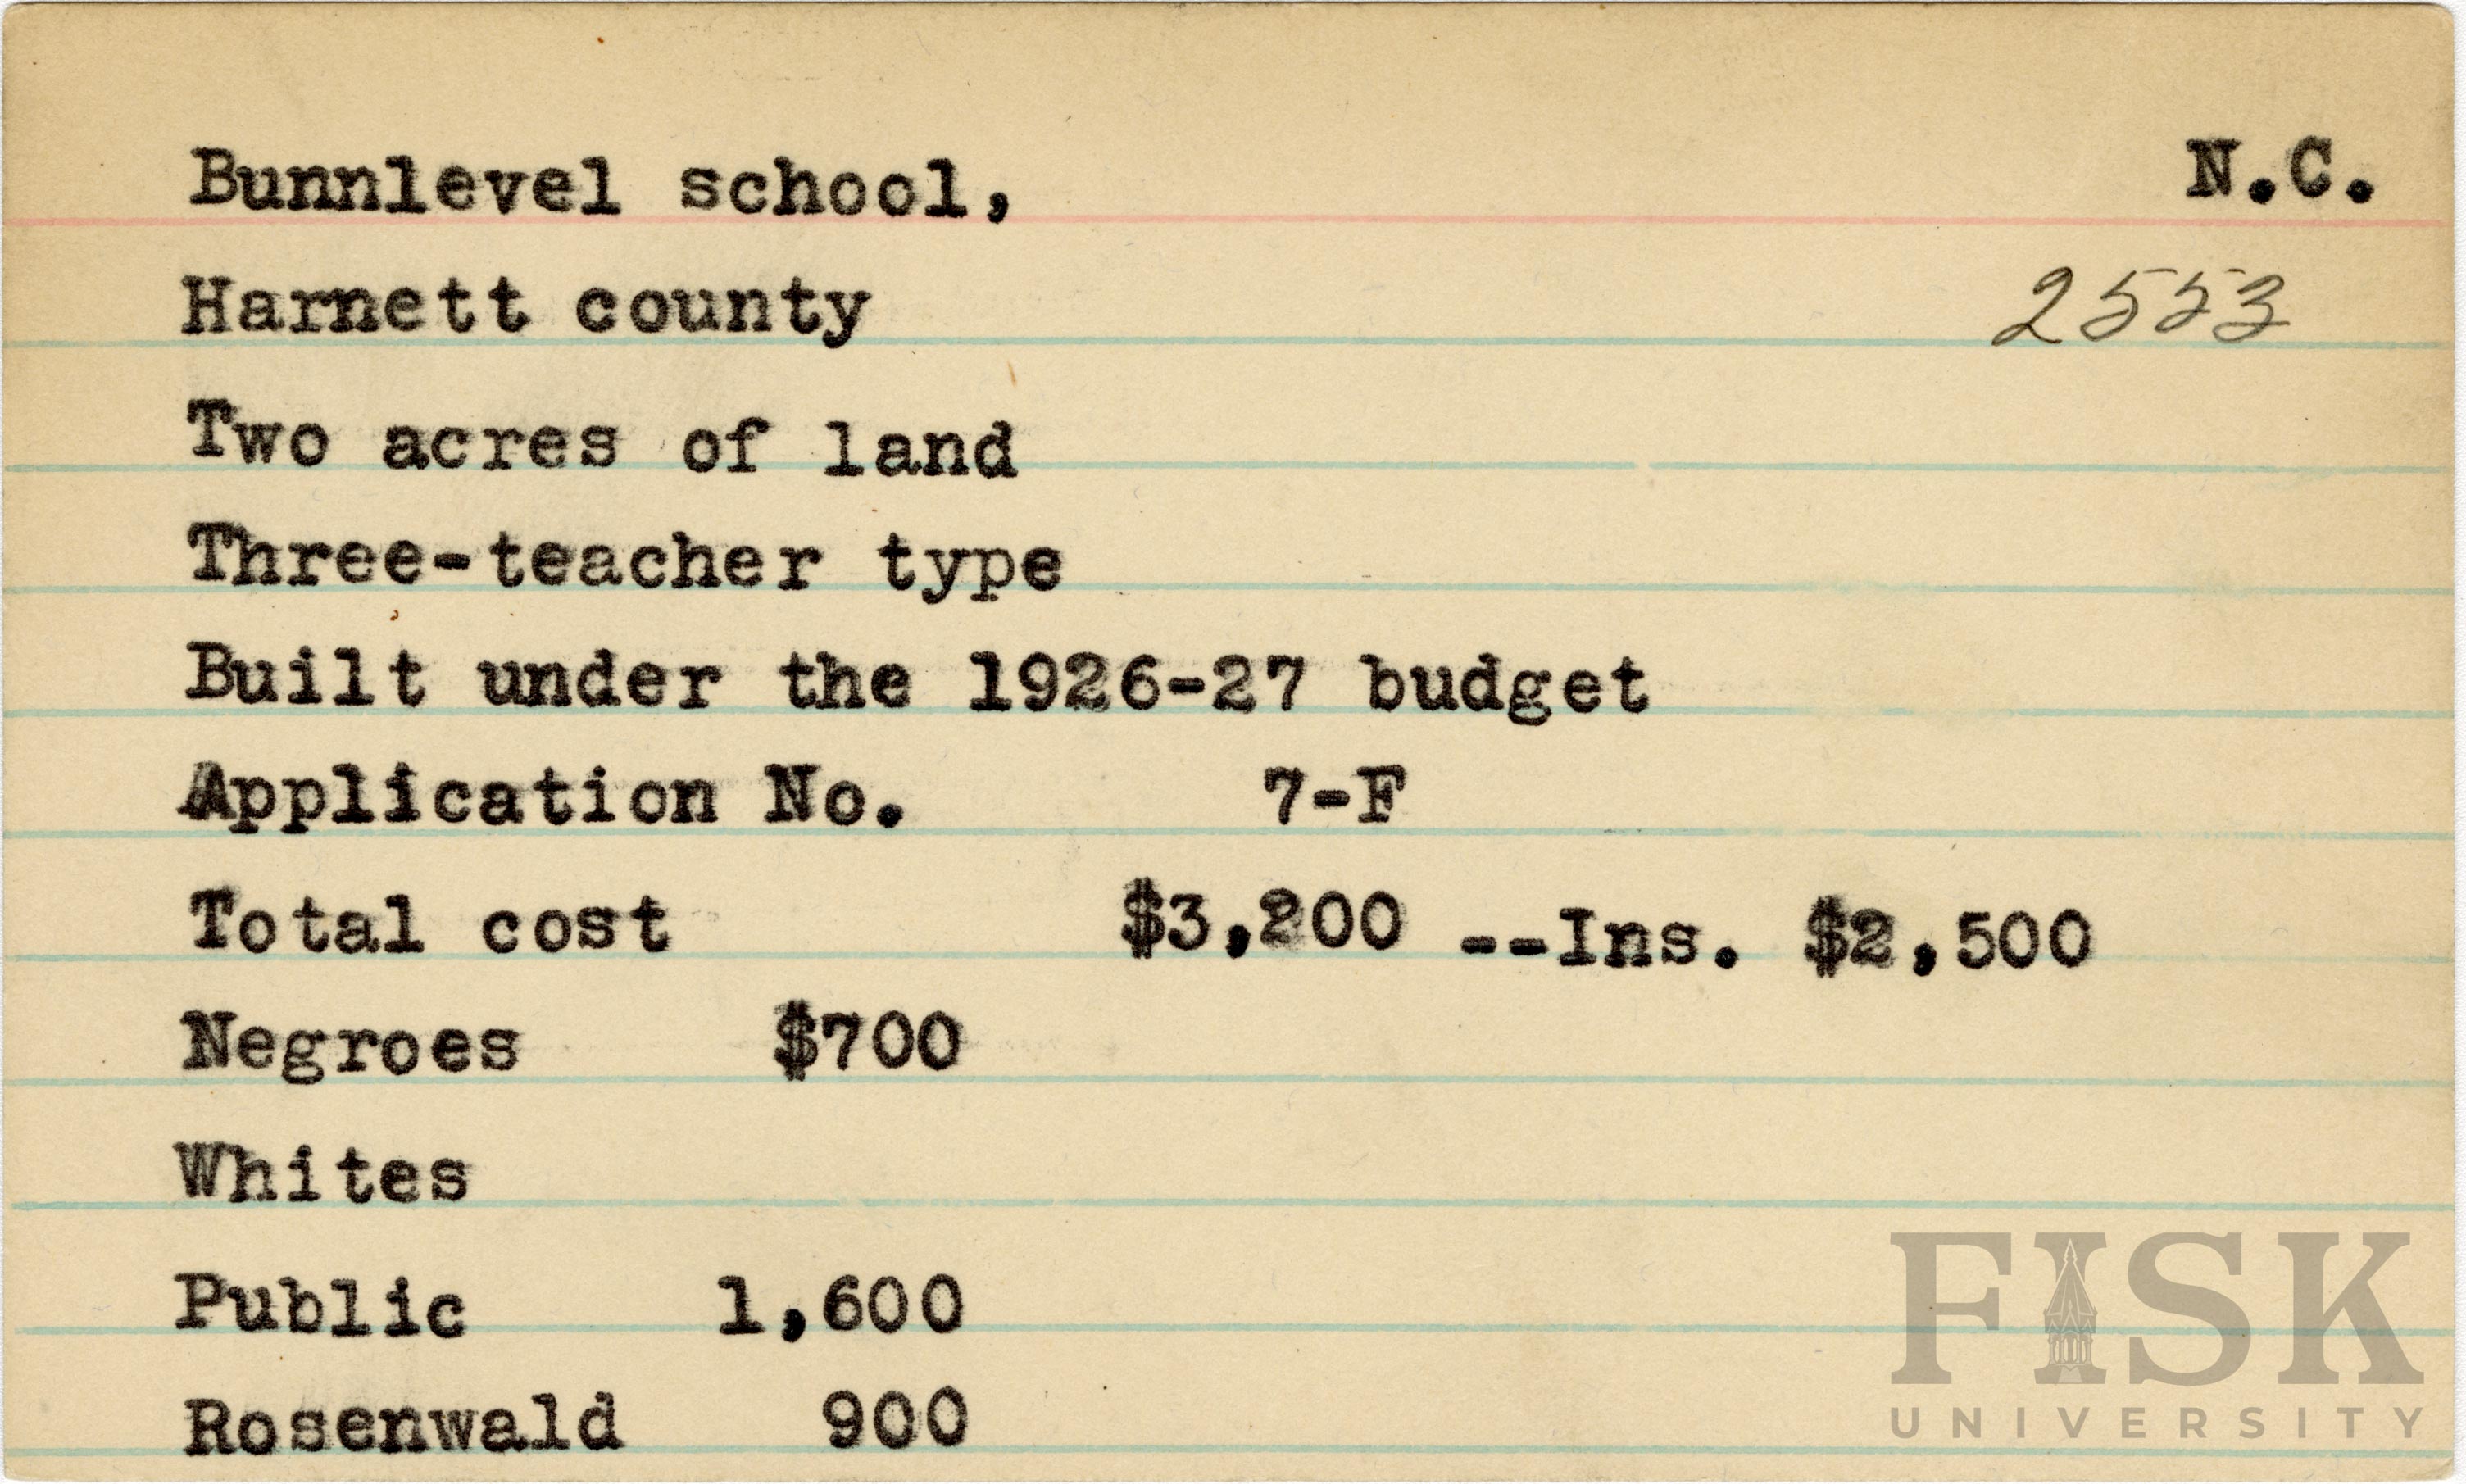 Bunnlevel school, N.C.
Harnett county 2553
Two acres of land
Three-teacher type
Built under the 1926-27 budget
Application No. 7-F
Total cost $3,200 --Ins. $2,500
Negroes $700
Whites
Public 1,600
Rosenwald 900
FISK
UNIVERSITY